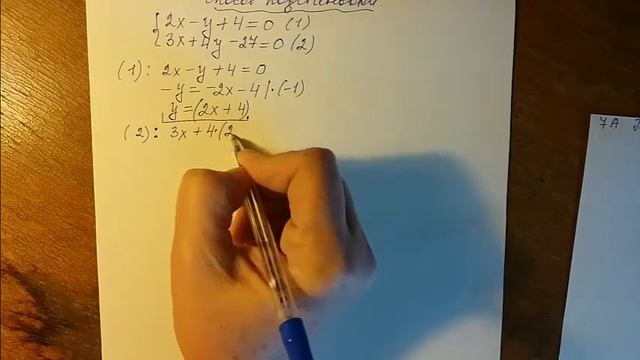 способ подстановки.
{2x - y + 4 = 0 (1)
{3x + 4y - 27 = 0 (2)
(1): 2x - y + 4 = 0
-y = -2x - 4 | · (-1)
y = (2x + 4)
(2): 3x + 4 · (2
7А